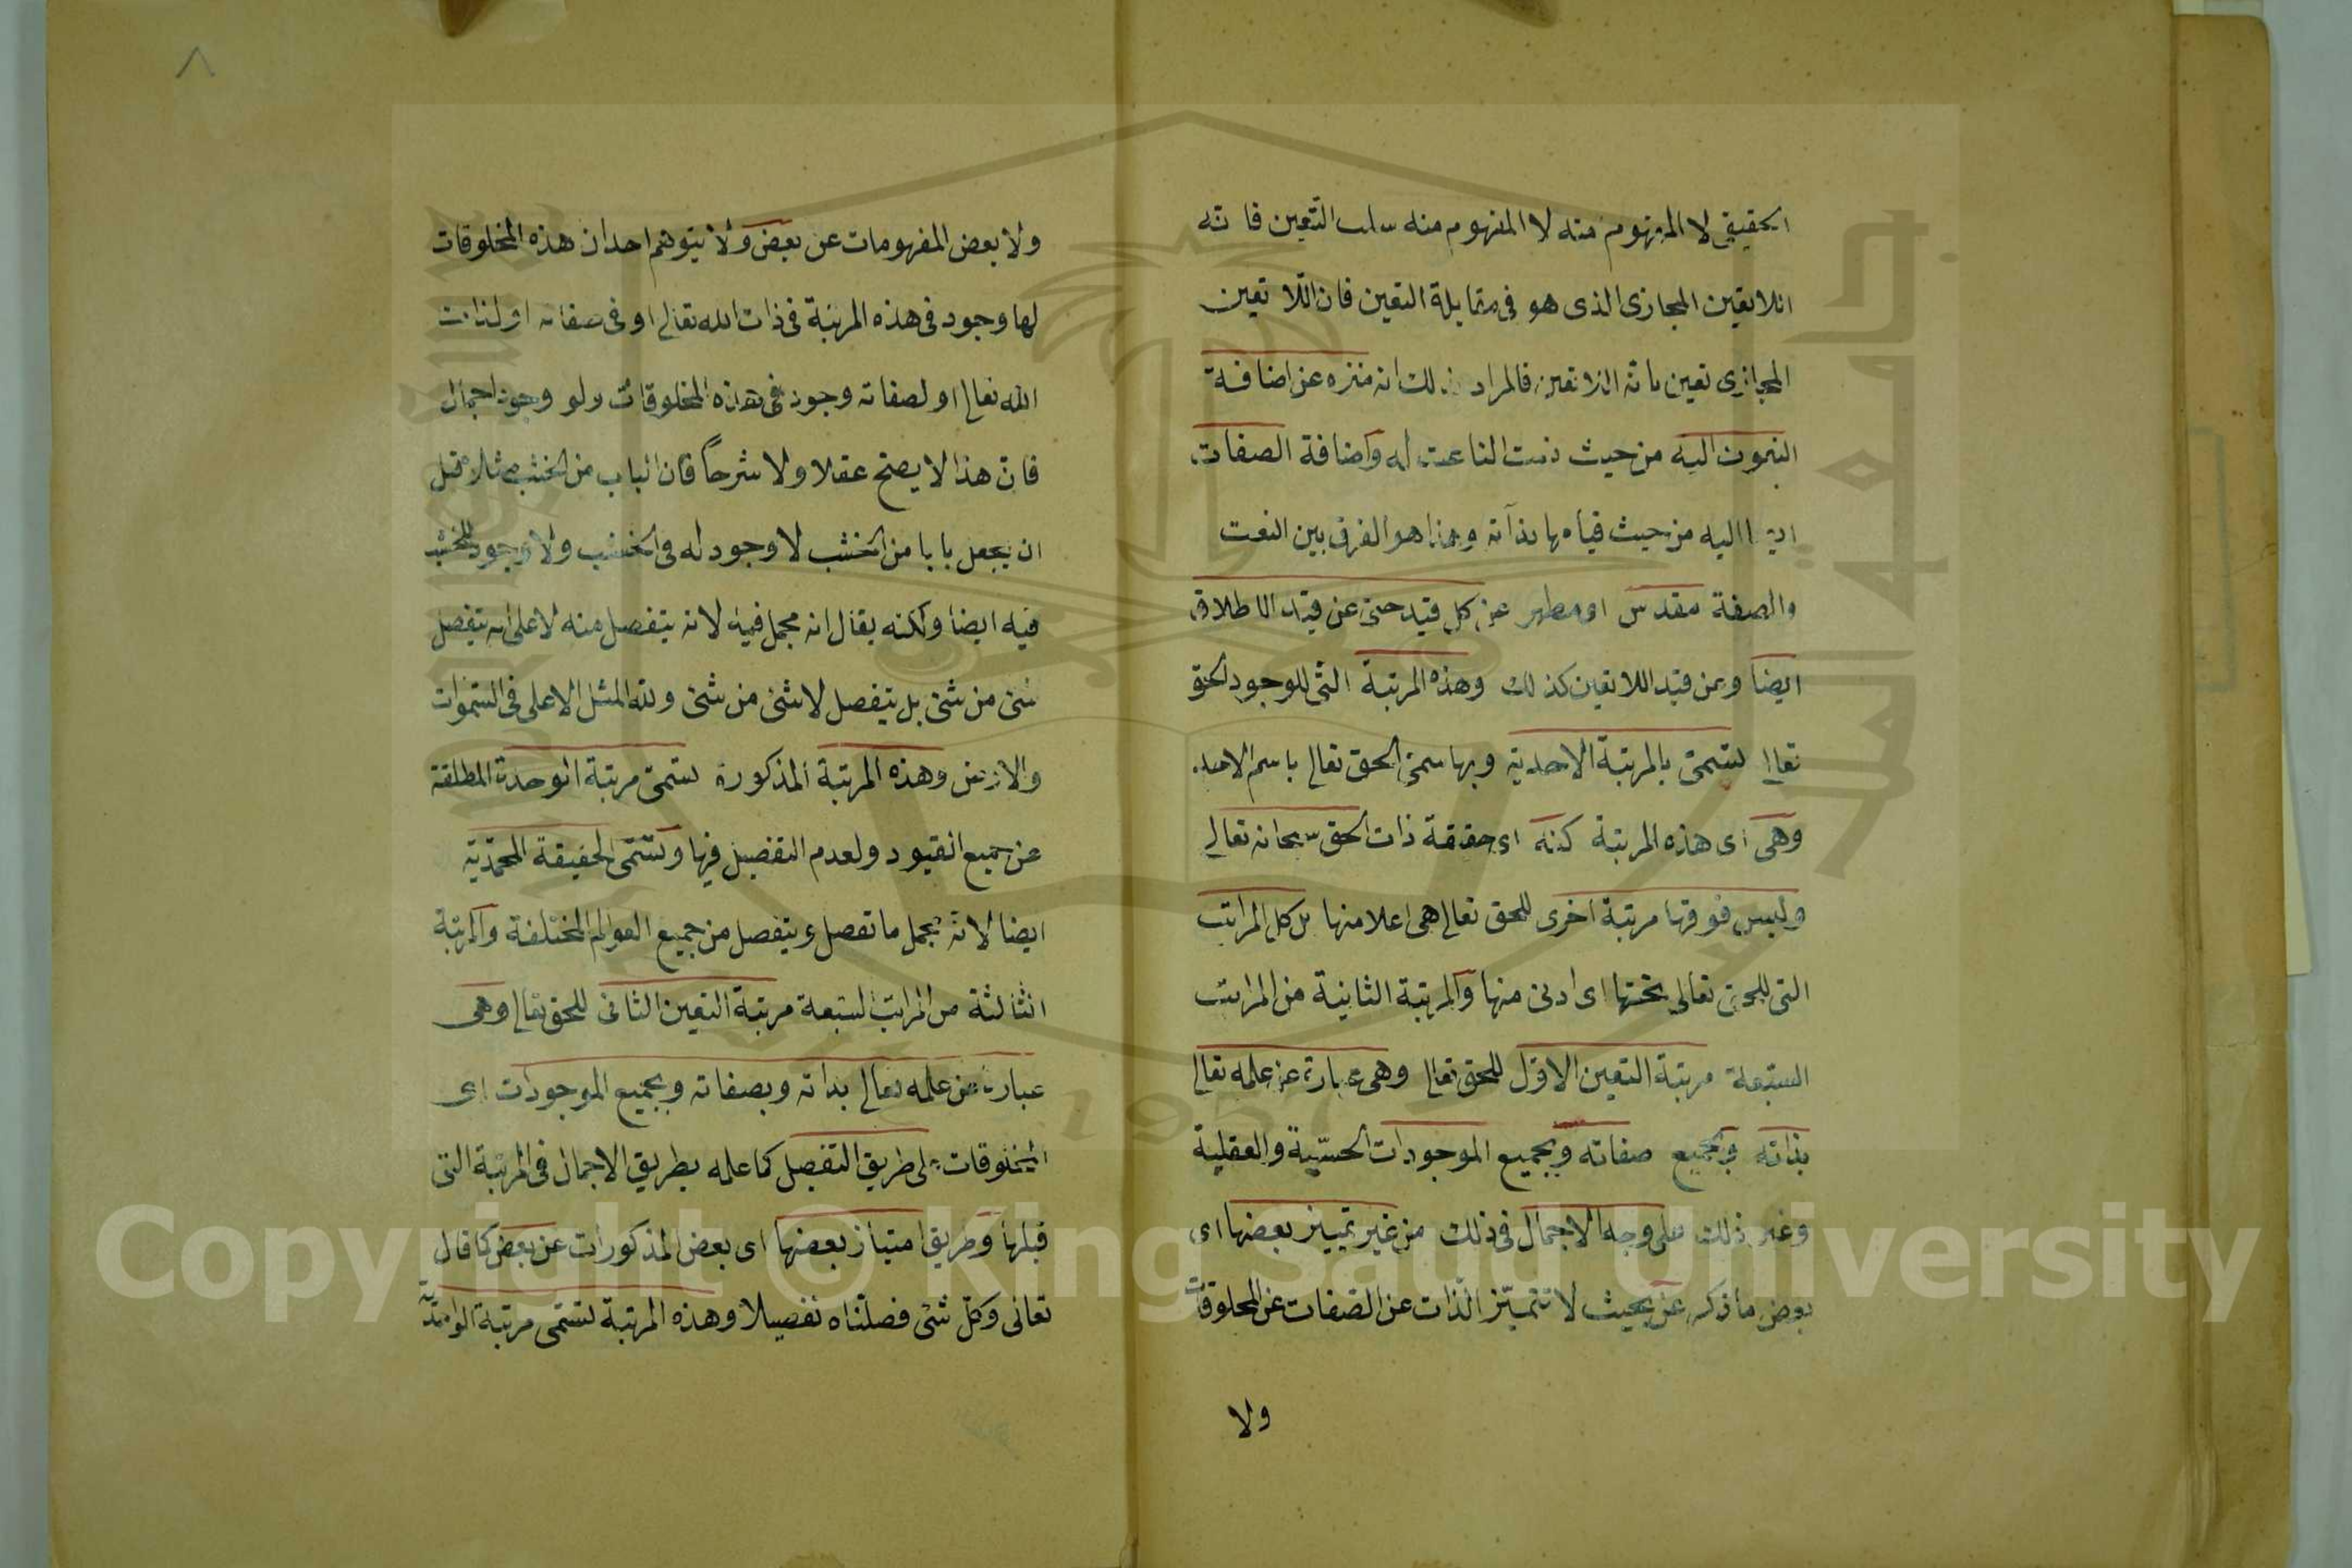 الحقيقى لا المفهوم منه لا المفهوم منه سلب التعين فانه
اللاتعين المجازى الذى هو فى مقابلة التعين فان اللاتعين
المجازى تعين بانه اللاتعين فالمراد بذلك انه منزه عن اضافة
النعوت اليه من حيث نعت الناعت له واضافة الصفات
اليه من حيث قيامها بذاته وهذا هو الفرق بين النعت
والصفة مقدس او مطهر عن كل قيد حتى عن قيد الاطلاق
ايضا وعن قيد اللاتعين كذلك وهذه المرتبة التى للوجود الحق
تعالى تسمى بالمرتبة الاحدية وبها سمى الحق تعالى باسم الاحد
وهى اى هذه المرتبة كنه اى حقيقة ذات الحق سبحانه تعالى
وليس فوقها مرتبة اخرى للحق تعالى هى اعلا منها بل كل المراتب
التى للحق تعالى تحتها اى ادنى منها والمرتبة الثانية من المراتب
السبعة مرتبة التعين الاول للحق تعالى وهى عبارة عن علمه تعالى
بذاته وبجميع صفاته وبجميع الموجودات الحسّية والعقلية
وغير ذلك على وجه الاجمال فى ذلك من غير تمييز بعضها اى
بعض ما ذكر عن بحيث لا تتميّز الذات عن الصفات عن المخلوقات
ولا
٨
ولا بعض المفهومات عن بعض ولا يتوهم احد ان هذه المخلوقات
لها وجود فى هذه المرتبة فى ذات الله تعالى او فى صفاته او لذات
الله تعالى او لصفاته وجود فى هذه المخلوقات ولو وجود اجمال
فان هذا لا يصح عقلا ولا شرعاً فان الباب من الخشب مثلا قبل
ان يجعل بابا من الخشب لا وجود له فى الخشب ولا وجود للخشب
فيه ايضا ولكنه يقال انه مجمل فيه لانه يتفصل منه لا على انه يتفصل
شئ من شئ بل يتفصل لا شئ من شئ ولله المثل الاعلى فى السموات
والارض وهذه المرتبة المذكورة تسمى مرتبة الوحدة المطلقة
عن جميع القيود ولعدم التفصيل فيها وتسمى الحقيقة المحمّدية
ايضا لانه مجمل ما تفصل ويتفصل من جميع العوالم المختلفة والمرتبة
الثالثة من المراتب السبعة مرتبة التعين الثانى للحق تعالى وهى
عبارة عن علمه تعالى بذاته وبصفاته وبجميع الموجودات اى
المخلوقات على طريق التفصيل كما علمه بطريق الاجمال فى المرتبة التى
قبلها وطريق امتياز بعضها اى بعض المذكورات عن بعض كما قال
تعالى وكل شئ فصلناه تفصيلا وهذه المرتبة تسمى مرتبة الواحدية
Copyright © King Saud University
جامعة الملك
1957